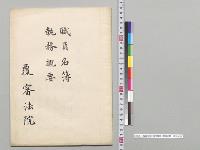 職員名簿
執務概要
覆審法院